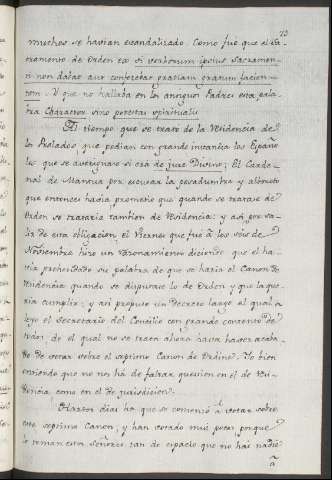 73
muchos se havian escandalizado. Como fué que el Sa-
cramento de Orden ex vi verborum ipsius Sacramen-
ti non dabat aut conferebat gratiam gratum facien-
tem. Y que no hallaba en los antiguos Padres esta pala-
bra Character sino potestas spiritualis
Al tiempo que se trató de la Residencia de
los Prelados, que pedian con grande instancia los Españo-
les que se averiguase si era de jure Divino; El Carde-
nal de Mantua por escusar la pesadumbre y alboroto
que entonces havia prometió que quando se tratase de
Orden se trataria tambien de Residencia: y así por sa-
lir de esta obligacion, el Viernes que fué á los seis de
Noviembre hizo un razonamiento diciendo que el ha-
via prometido su palabra de que se haria el Canon de
Residencia quando se dispusiese lo de Orden y que la que-
ria cumplir; y así propuso un Decreto largo el qual
leyó el Secretario del Concilio con grande contento de
todos, de el qual no se trata ahora hasta haver acaba-
do de votar sobre el septimo Canon de Ordine. Yo bien
entiendo que no nos há de faltar question en el de Resi-
dencia como en el de jurisdicion.
Hartos dias ha que se comenzó á votar sobre
este septimo Canon; y han votado mui pocos porque
lo toman estos Señores tan de espacio que no hai nadie
á